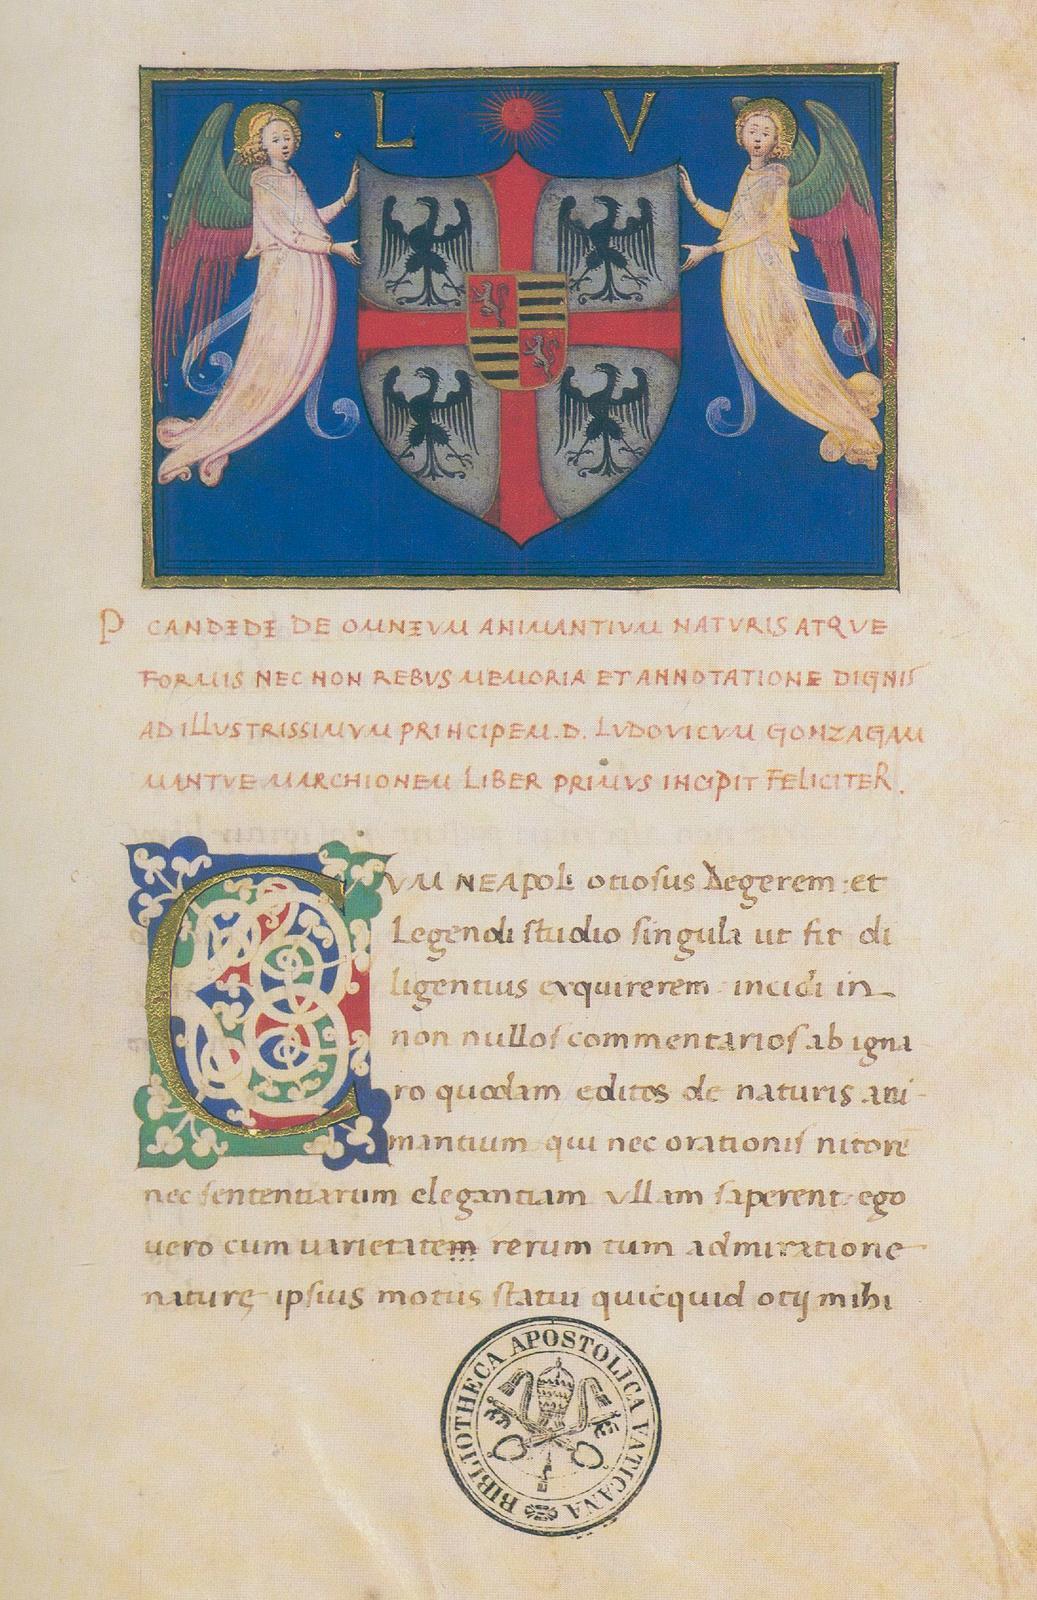 L V
P CANDIDI DE OMNIVM ANIMANTIVM NATVRIS ATQVE
FORMIS NEC NON REBVS MEMORIA ET ANNOTATIONE DIGNIS
AD ILLUSTRISSIMVM PRINCIPEM. D. LVDOVICVM GONZAGAM
MANTVE MARCHIONEM LIBER PRIMVS INCIPIT FELICITER.
CVM NEAPOLI otiosus degerem: et
Legendi studio singula ut fit di
ligentius exquirerem incidi in
non nullos commentarios ab igna
ro quodam editos de naturis ani-
mantium qui nec orationis nitorē
nec sententiarum elegantiam vllam saperent. ego
uero cum uarietatem rerum tum admiratione
naturę ipsius motus statui quicquid otij mihi
BIBLIOTHECA APOSTOLICA VATICANA